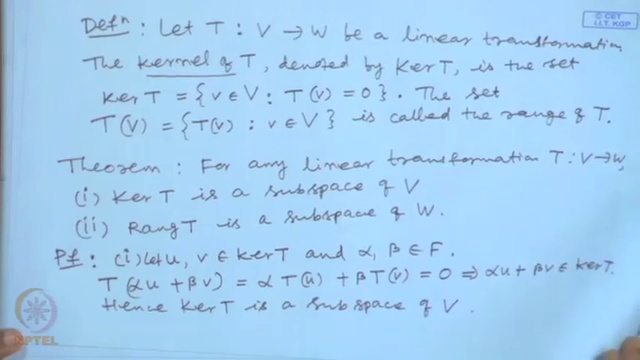 © CET
I.I.T. KGP
Defⁿ : Let T : V → W be a linear transformation.
The Kernel of T, denoted by Ker T, is the set
Ker T = {v ∈ V : T(v) = 0}. The set
T(V) = {T(v) : v ∈ V} is called the range of T.
Theorem : For any linear transformation T : V → W,
(i) Ker T is a subspace of V
(ii) Rang T is a subspace of W.
Pf : (i) Let u, v ∈ Ker T and α, β ∈ F.
T(αu + βv) = αT(u) + βT(v) = 0 ⇒ αu + βv ∈ Ker T.
Hence Ker T is a subspace of V.
NPTEL